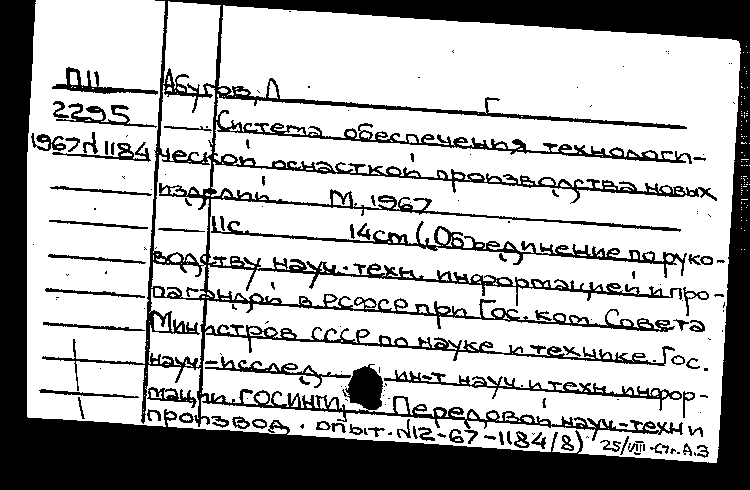 П11 Абугов, Л Г
2295 Система обеспечения технологи-
1967 N 1184 ческой оснасткой производства новых
изделий. М., 1967
11с. 14см (Объединение по руко-
водству науч.-техн. информацией и про-
пагандой в РСФСР при Гос. ком. Совета
Министров СССР по науке и технике. Гос.
науч-исслед. ин-т науч. и техн. инфор-
мации. ГОСИНТИ, Передовой науч-техн и
производ. опыт. N12-67-1184/8) 25/VIII-67г. А.З